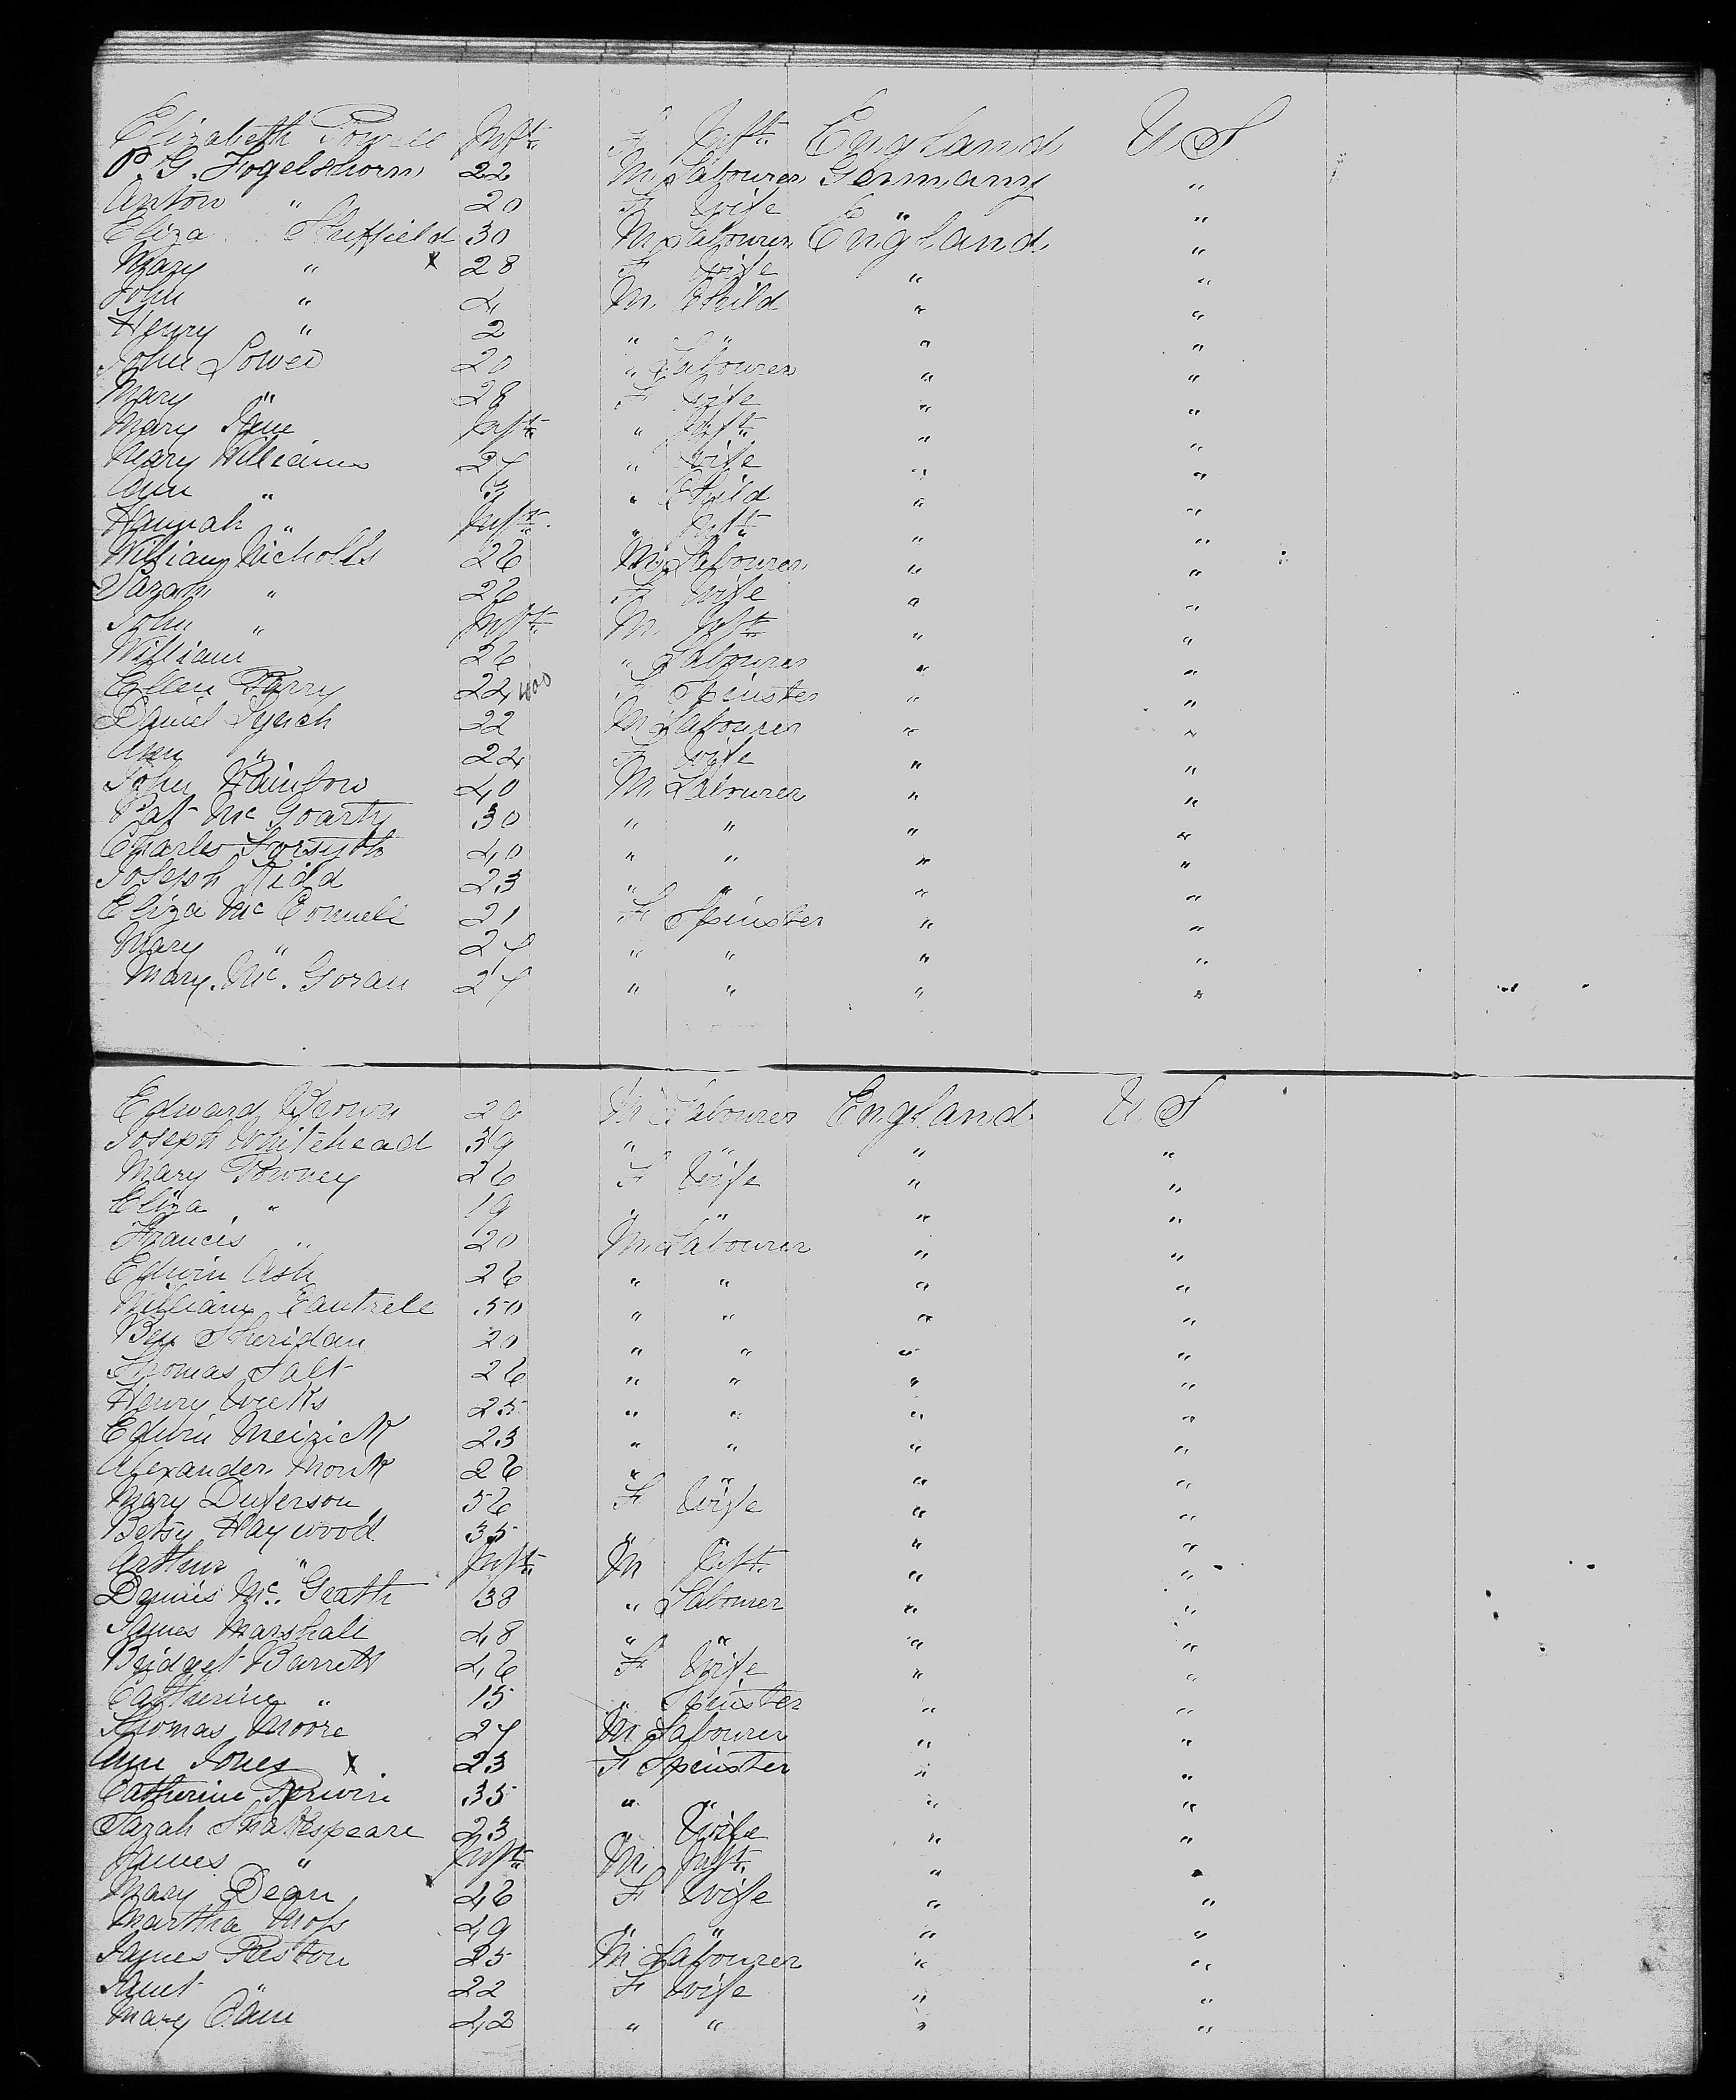 Elizabeth Powell Inft. F Inft. England U S
P. G. Fogelshorn 22 M Labourer Germany "
Anton " 20 F Wife " "
Eliza Sheffield 30 M Labourer England "
Mary " x 28 F Wife " "
John " 4 M Child " "
Henry " 2 " " " "
John Lower 20 " Labourer " "
Mary " 28 F Wife " "
Mary Jane Inft. " Inft. " "
Mary Williams 27 " Wife " "
Ann " 3 " Child " "
Hannah " Inft. " Inft. " "
William Nicholls 26 M Labourer " "
Sarah " 26 F Wife " "
John " Inft. M Inft. " "
William 26 " Labourer " "
Ellen Parry 24 F Spinster " "
Daniel Lynch 22 M Labourer " "
Ann " 24 F Wife " "
John Rainbow 40 M Labourer " "
Pat Mc Goarty 30 " " " "
Charles Forsyth 40 " " " "
Joseph Kidd 23 " " " "
Eliza Mc Connell 21 F Spinster " "
Mary " 27 " " " "
Mary Mc. Goran 27 " " " "
Edward Brown 29 M Labourer England U S
Joseph Whitehead 39 " " " "
Mary Powney 26 F Wife " "
Eliza " 19 " " " "
Francis " 20 M Labourer " "
Edwin Ash 26 " " " "
William Cantrell 50 " " " "
Ben Sheridan 20 " " " "
Thomas Salt 26 " " " "
Henry Weeks 25 " " " "
Edwin Meirick 23 " " " "
Alexander Monk 26 " " " "
Mary Duferson 56 F Wife " "
Betsy Haywood 35 " " " "
Arthur " Inft. M Inft. " "
Dennis Mc. Grath 38 " Labourer " "
James Marshall 48 " " " "
Bridget Barrett 46 F Wife " "
Catherine " 15 " Spinster " "
Thomas Moore 27 M Labourer " "
Ann Jones x 23 F Spinster " "
Catherine Perwin 35 " " " "
Sarah Shakespeare 23 " Wife " "
James " Inft. M Inft. " "
Mary Dean 46 F Wife " "
Martha Moss 49 " " " "
James Preston 25 M Labourer " "
Janet " 22 F Wife " "
Mary Cain 42 " " " "